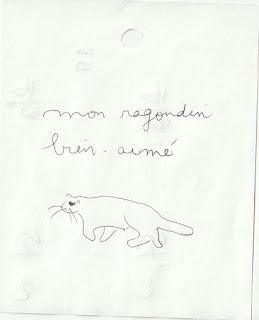 mon ragondin
bien-aimé